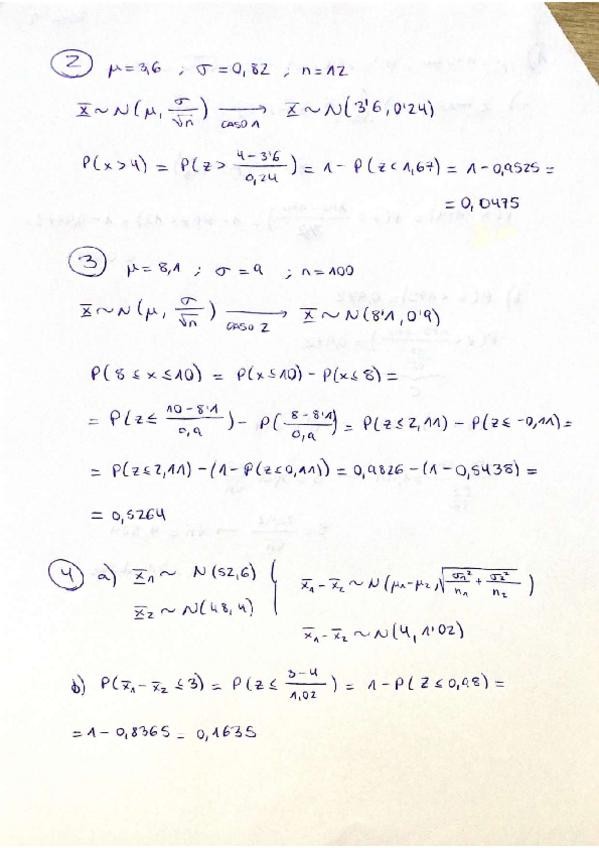 2 μ=3,6 ; σ=0,82 ; n=12
X̄ ~ N(μ, σ/√n) ⟶ CASO 1 X̄ ~ N(3'6, 0'24)
P(x>4) = P(z> (4-3'6)/0,24) = 1 - P(z<1,67) = 1-0,9525 =
= 0,0475
3 μ=8,1 ; σ=9 ; n=100
X̄ ~ N(μ, σ/√n) ⟶ CASO 2 X̄ ~ N(8'1, 0'9)
P(8≤x≤10) = P(x≤10) - P(x≤8) =
= P(z≤ (10-8'1)/0,9) - P( (8-8'1)/0,9) = P(z≤2,11) - P(z≤-0,11) =
= P(z≤2,11) - (1-P(z≤0,11)) = 0,9826 - (1-0,5438) =
= 0,5264
4 a) x̄1 ~ N(52,6)
x̄2 ~ N(48,4)
x̄1-x̄2 ~ N(μ1-μ2, √(σ1²/n1 + σ2²/n2))
x̄1-x̄2 ~ N(4, 1'02)
b) P(x̄1-x̄2 ≤3) = P(z≤ (3-4)/1,02) = 1-P(z≤0,98) =
= 1-0,8365 = 0,1635